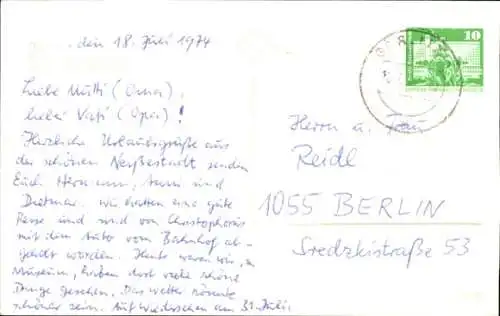 den 18. Juli 1974
Liebe Mutti (Oma),
lieber Vati (Opa)!
Herzliche Urlaubsgrüße aus
der schönen Neißestadt senden
Euch Hermann, und
Dietmar. Wir hatten eine gute
Reise und sind von Christophoris
mit dem Auto vom Bahnhof ab-
geholt worden. Heute waren wir im
Museum, haben dort viele schöne
Dinge gesehen. Das Wetter könnte
schöner sein. Auf Wiedersehen am 31. Juli.
10
Herrn u. Frau
Reidl
1055 BERLIN
Sredzkistraße 53